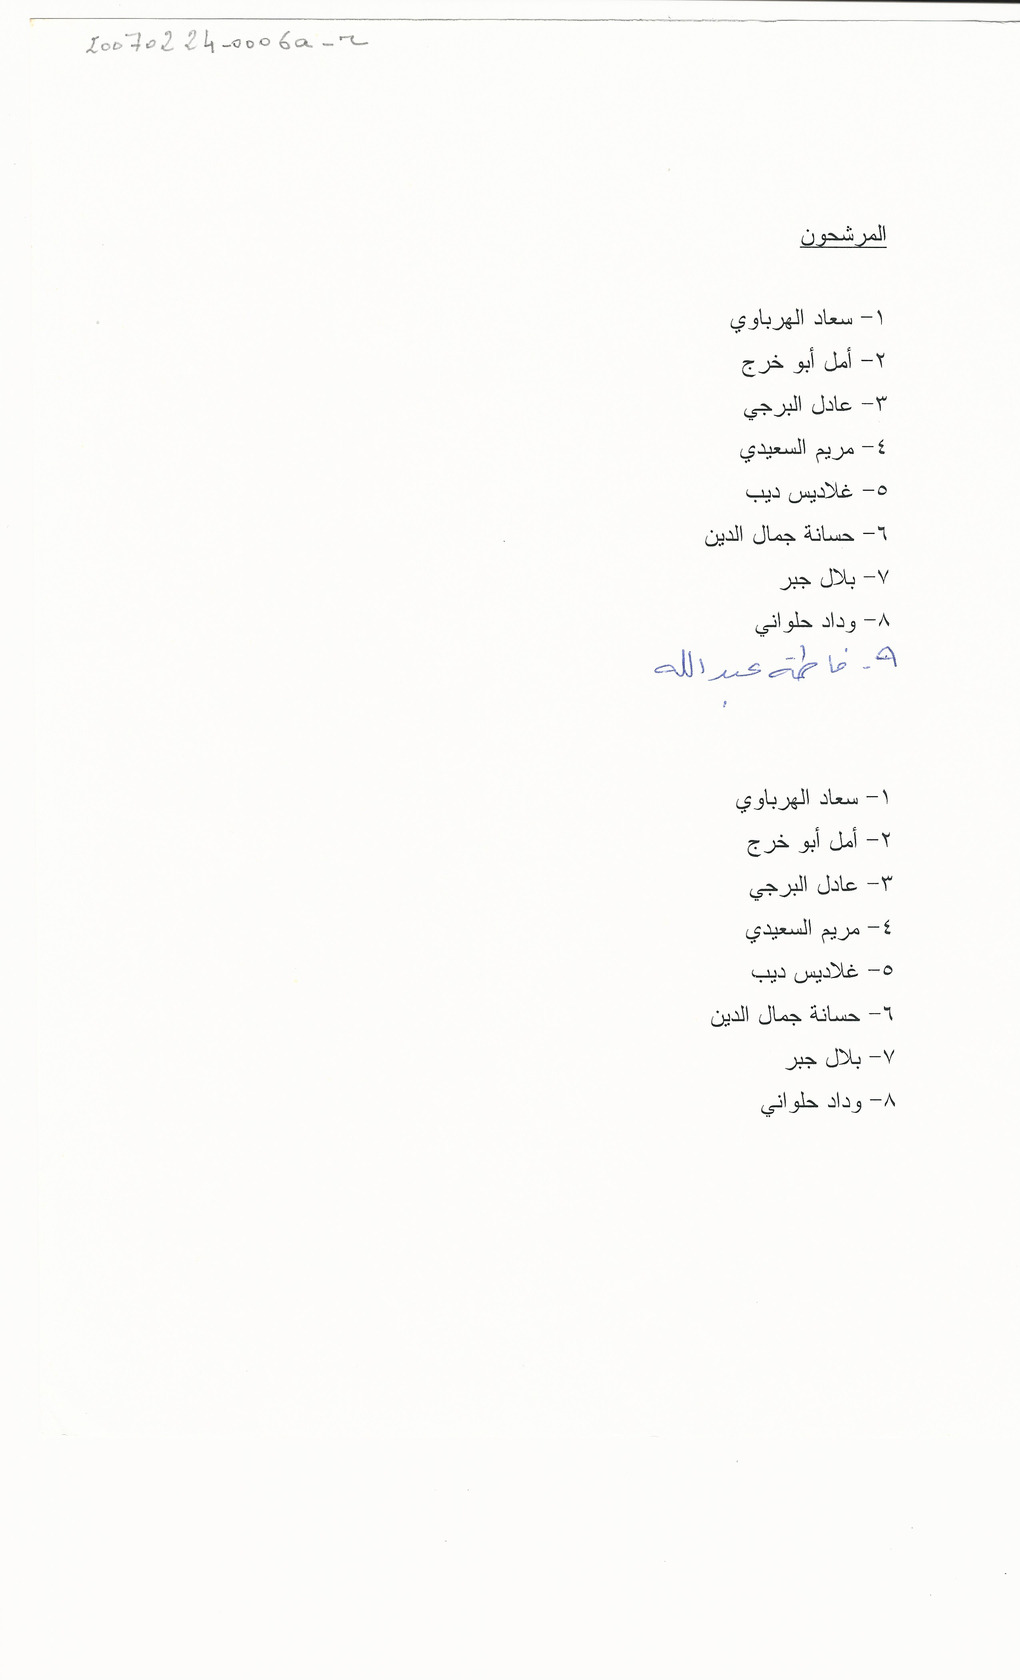 20070224-0006a-r
المرشحون
١- سعاد الهرباوي
٢- أمل أبو خرج
٣- عادل البرجي
٤- مريم السعيدي
٥- غلاديس ديب
٦- حسانة جمال الدين
٧- بلال جبر
٨- وداد حلواني
٩- فاطمة عبد الله
١- سعاد الهرباوي
٢- أمل أبو خرج
٣- عادل البرجي
٤- مريم السعيدي
٥- غلاديس ديب
٦- حسانة جمال الدين
٧- بلال جبر
٨- وداد حلواني